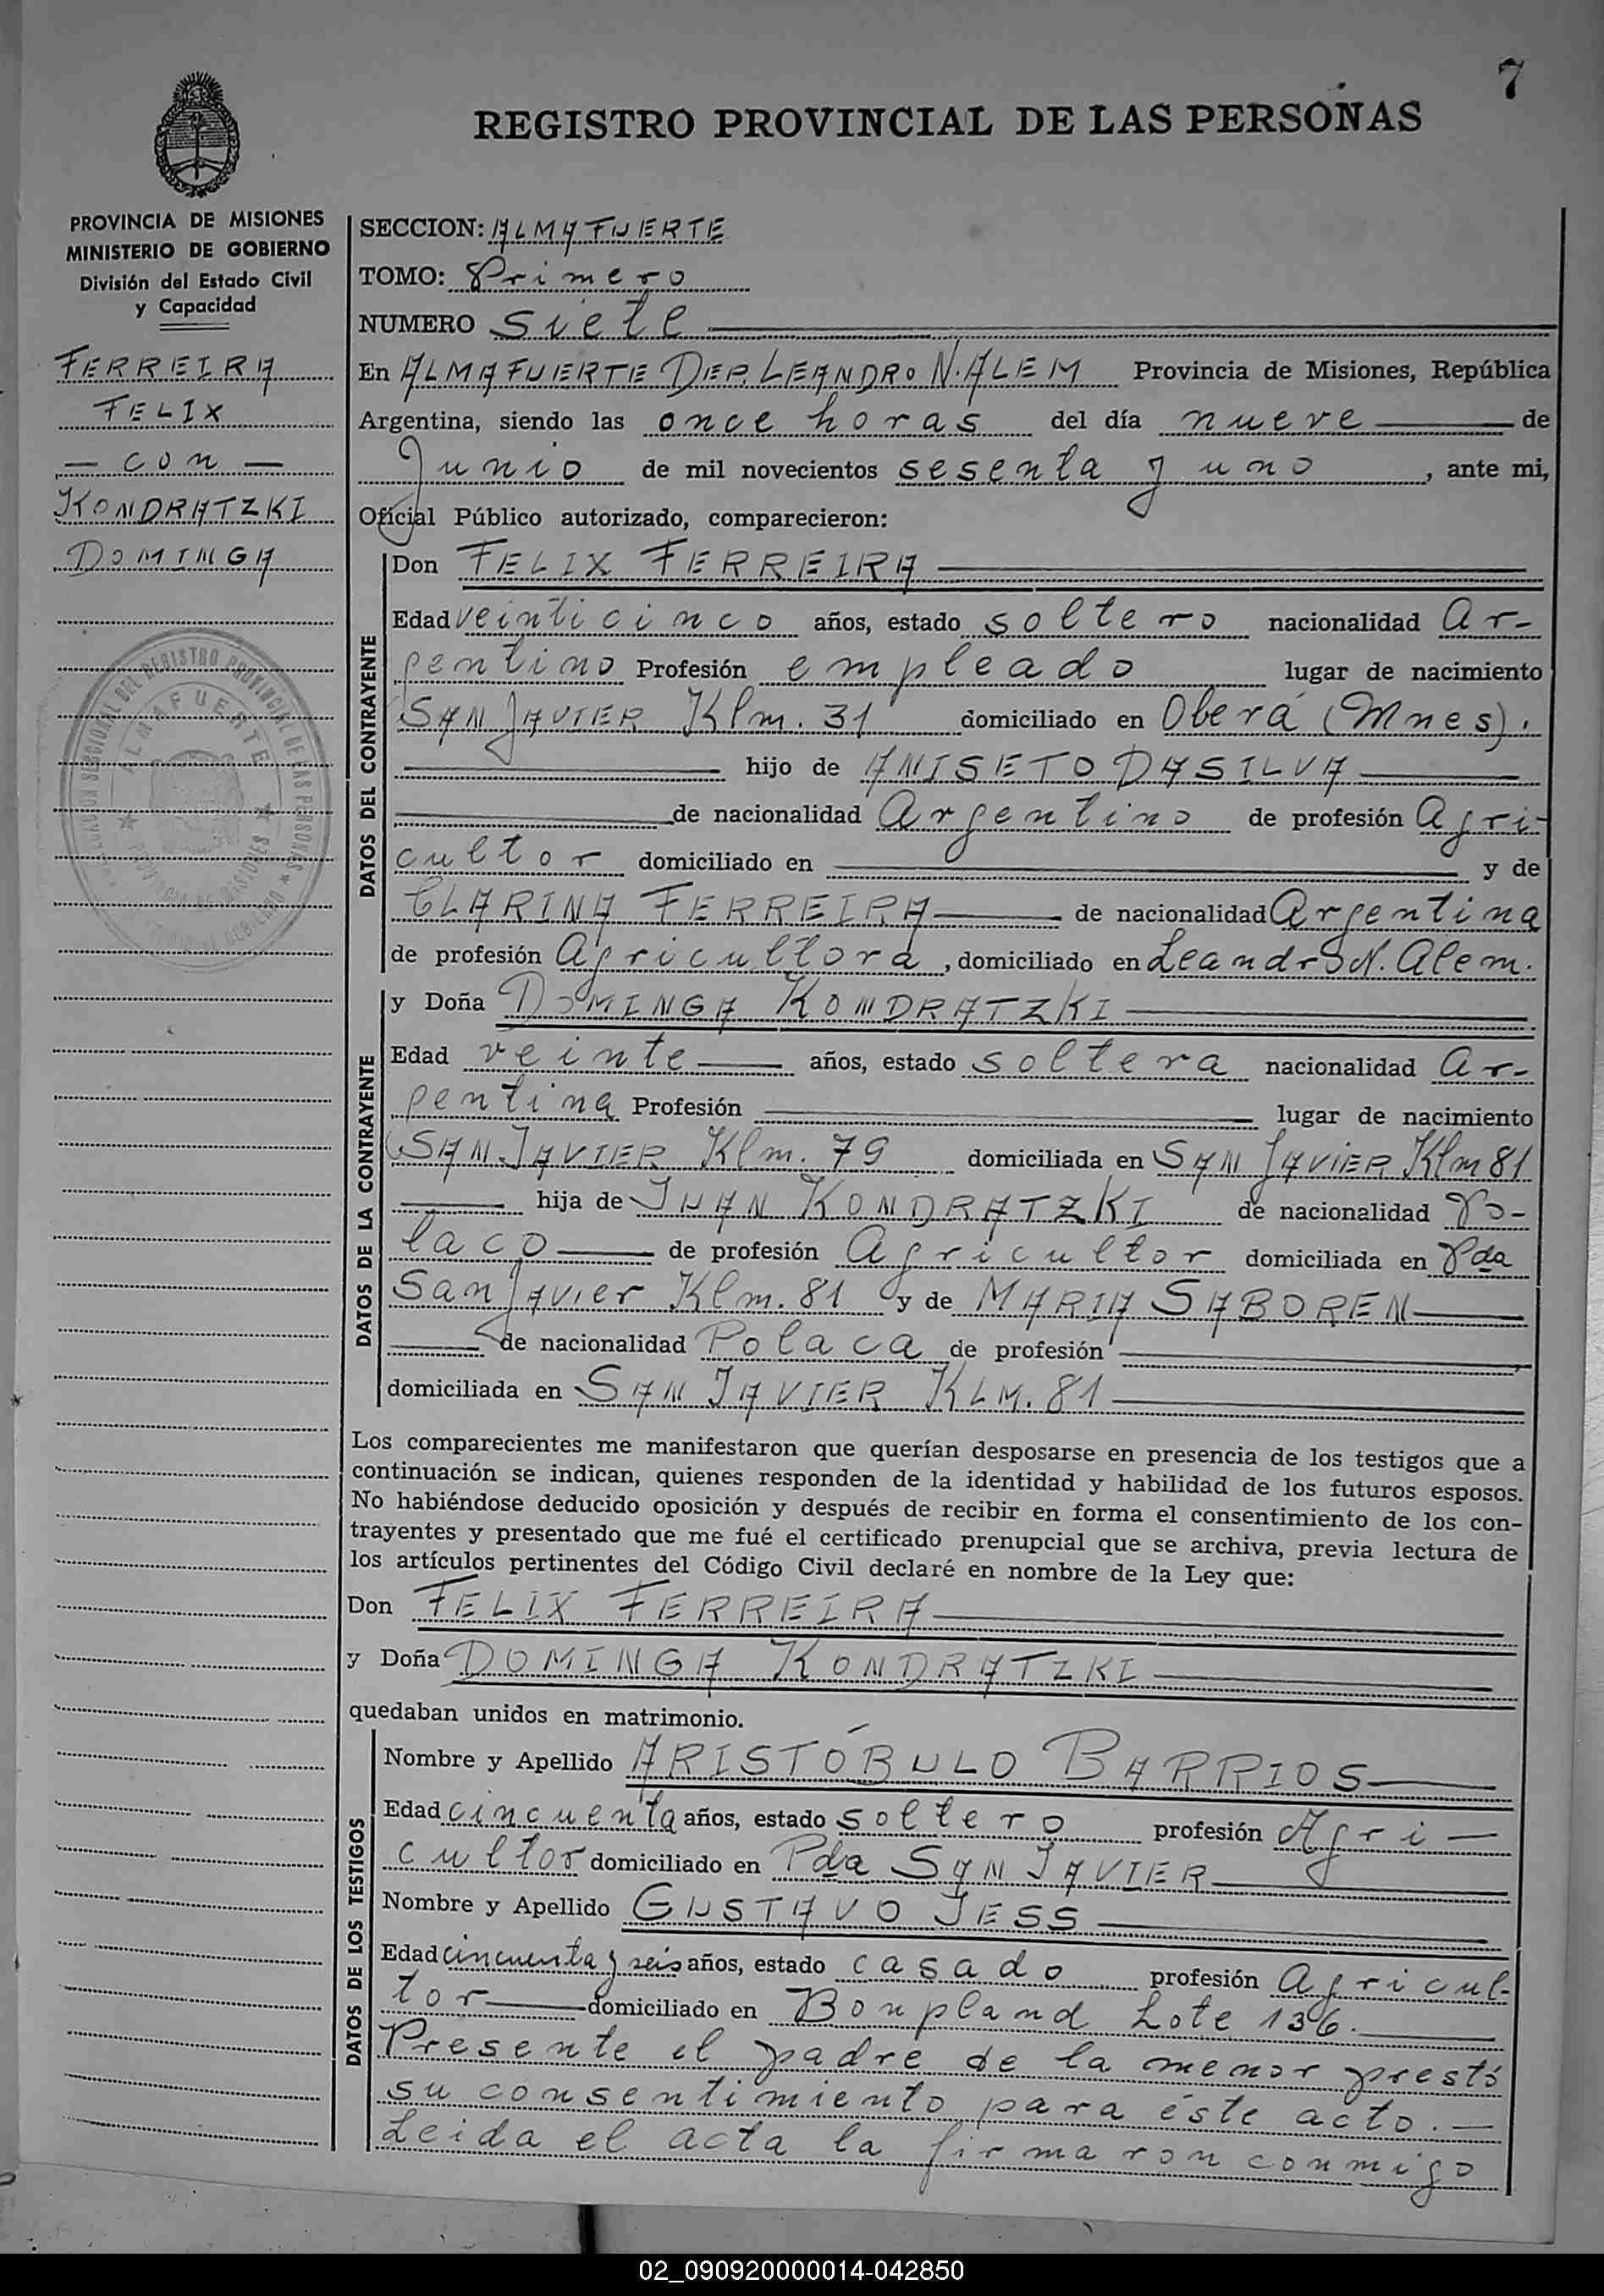 7
REGISTRO PROVINCIAL DE LAS PERSONAS
PROVINCIA DE MISIONES
MINISTERIO DE GOBIERNO
División del Estado Civil
y Capacidad
FERREIRA
FELIX
— con —
KONDRATZKI
DOMINGA
ALMAFUERTE
SECCION: ALMAFUERTE
TOMO: Primero
NUMERO siete
En ALMAFUERTE DEP. LEANDRO N. ALEM Provincia de Misiones, República
Argentina, siendo las once horas del día nueve de
Junio de mil novecientos sesenta y uno, ante mi,
Oficial Público autorizado, comparecieron:
DATOS DEL CONTRAYENTE
Don FELIX FERREIRA
Edad veinticinco años, estado soltero nacionalidad Ar-
gentino Profesión empleado lugar de nacimiento
SAN JAVIER Klm. 31 domiciliado en Oberá (Mnes).
hijo de ANISETO DASILVA
de nacionalidad Argentino de profesión Agri-
cultor domiciliado en y de
CLARINA FERREIRA de nacionalidad Argentina
de profesión Agricultora, domiciliado en Leandro N. Alem.
DATOS DE LA CONTRAYENTE
y Doña DOMINGA KONDRATZKI
Edad veinte años, estado soltera nacionalidad Ar-
gentina Profesión lugar de nacimiento
SAN JAVIER Klm. 79 domiciliada en SAN JAVIER Klm 81
hija de JUAN KONDRATZKI de nacionalidad Po-
laco de profesión Agricultor domiciliada en Pda
San Javier Klm. 81 y de MARIA SABOREN
de nacionalidad Polaca de profesión
domiciliada en SAN JAVIER KLM. 81
Los comparecientes me manifestaron que querían desposarse en presencia de los testigos que a
continuación se indican, quienes responden de la identidad y habilidad de los futuros esposos.
No habiéndose deducido oposición y después de recibir en forma el consentimiento de los con-
trayentes y presentado que me fué el certificado prenupcial que se archiva, previa lectura de
los artículos pertinentes del Código Civil declaré en nombre de la Ley que:
Don FELIX FERREIRA
y Doña DOMINGA KONDRATZKI
quedaban unidos en matrimonio.
DATOS DE LOS TESTIGOS
Nombre y Apellido ARISTÓBULO BARRIOS
Edad cincuenta años, estado soltero profesión Agri-
cultor domiciliado en Pda SAN JAVIER
Nombre y Apellido GUSTAVO JESS
Edad cincuenta y seis años, estado casado profesión Agricul-
tor domiciliado en Bonpland Lote 136.
Presente el padre de la menor prestó
su consentimiento para éste acto. —
Leida el acta la firmaron conmigo
02_090920000014-042850